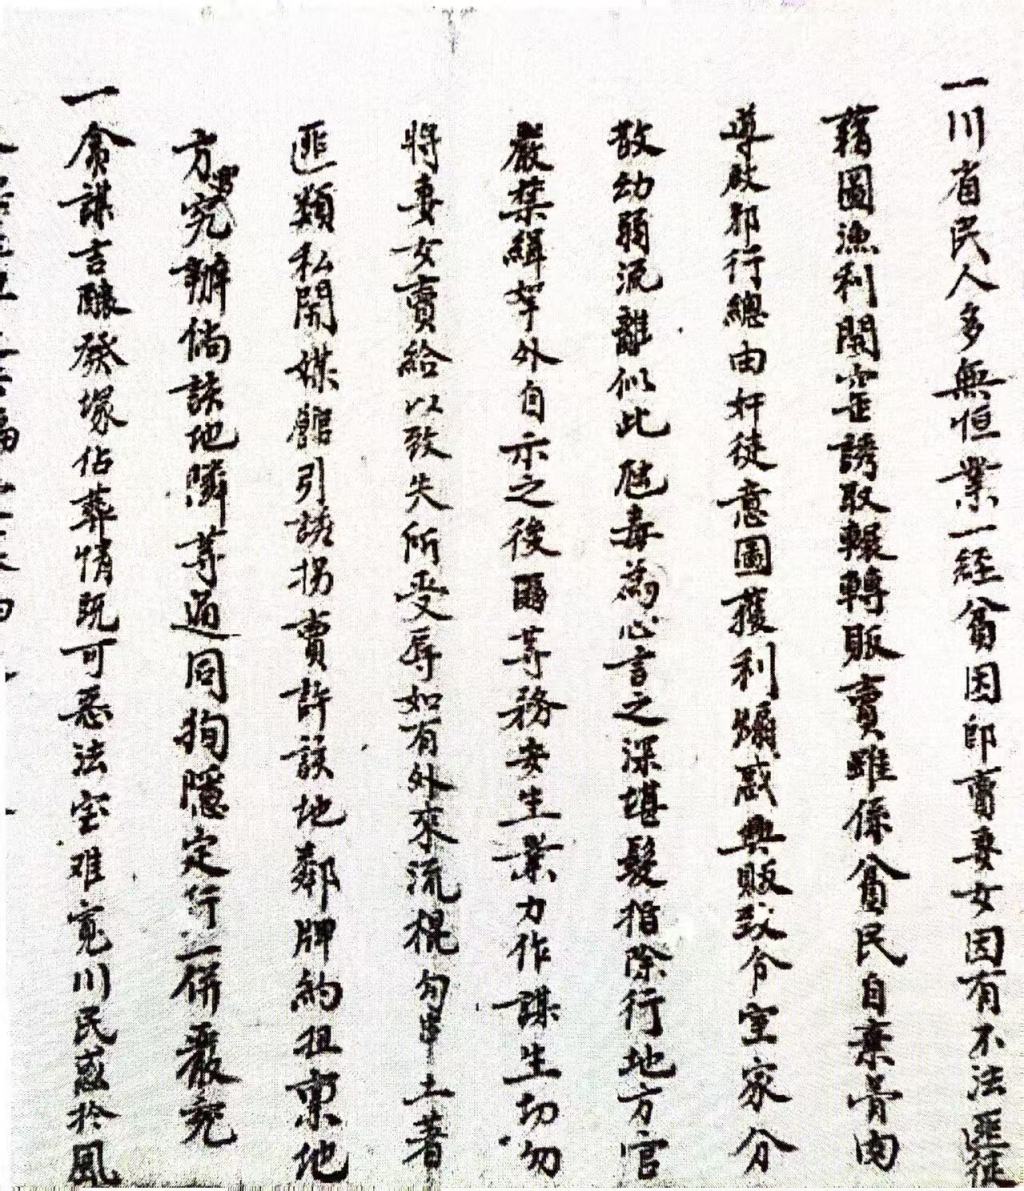 一川省民人多無恒業一經貧困即賣妻女因有不法匪徒
藉圖漁利開窑誘取輾轉販賣雖係貧民自棄骨肉
尋故鄰行總由奸徒意圖獲利煽惑興販致令室家分
散幼弱流離似此屯毒為心言之深堪髮指除行地方官
嚴禁緝拏外自示之後爾等務安生業力作謀生切勿
將妻女賣給以致失所受辱如有外來流棍勾串土著
匪類私開媒館引誘拐賣許該地鄰牌約扭稟地
方官究辦倘該地隣等通同狥隱定行一併嚴究
一貪謀吉壤發塚佔葬情既可惡法室难寬川民惑於風